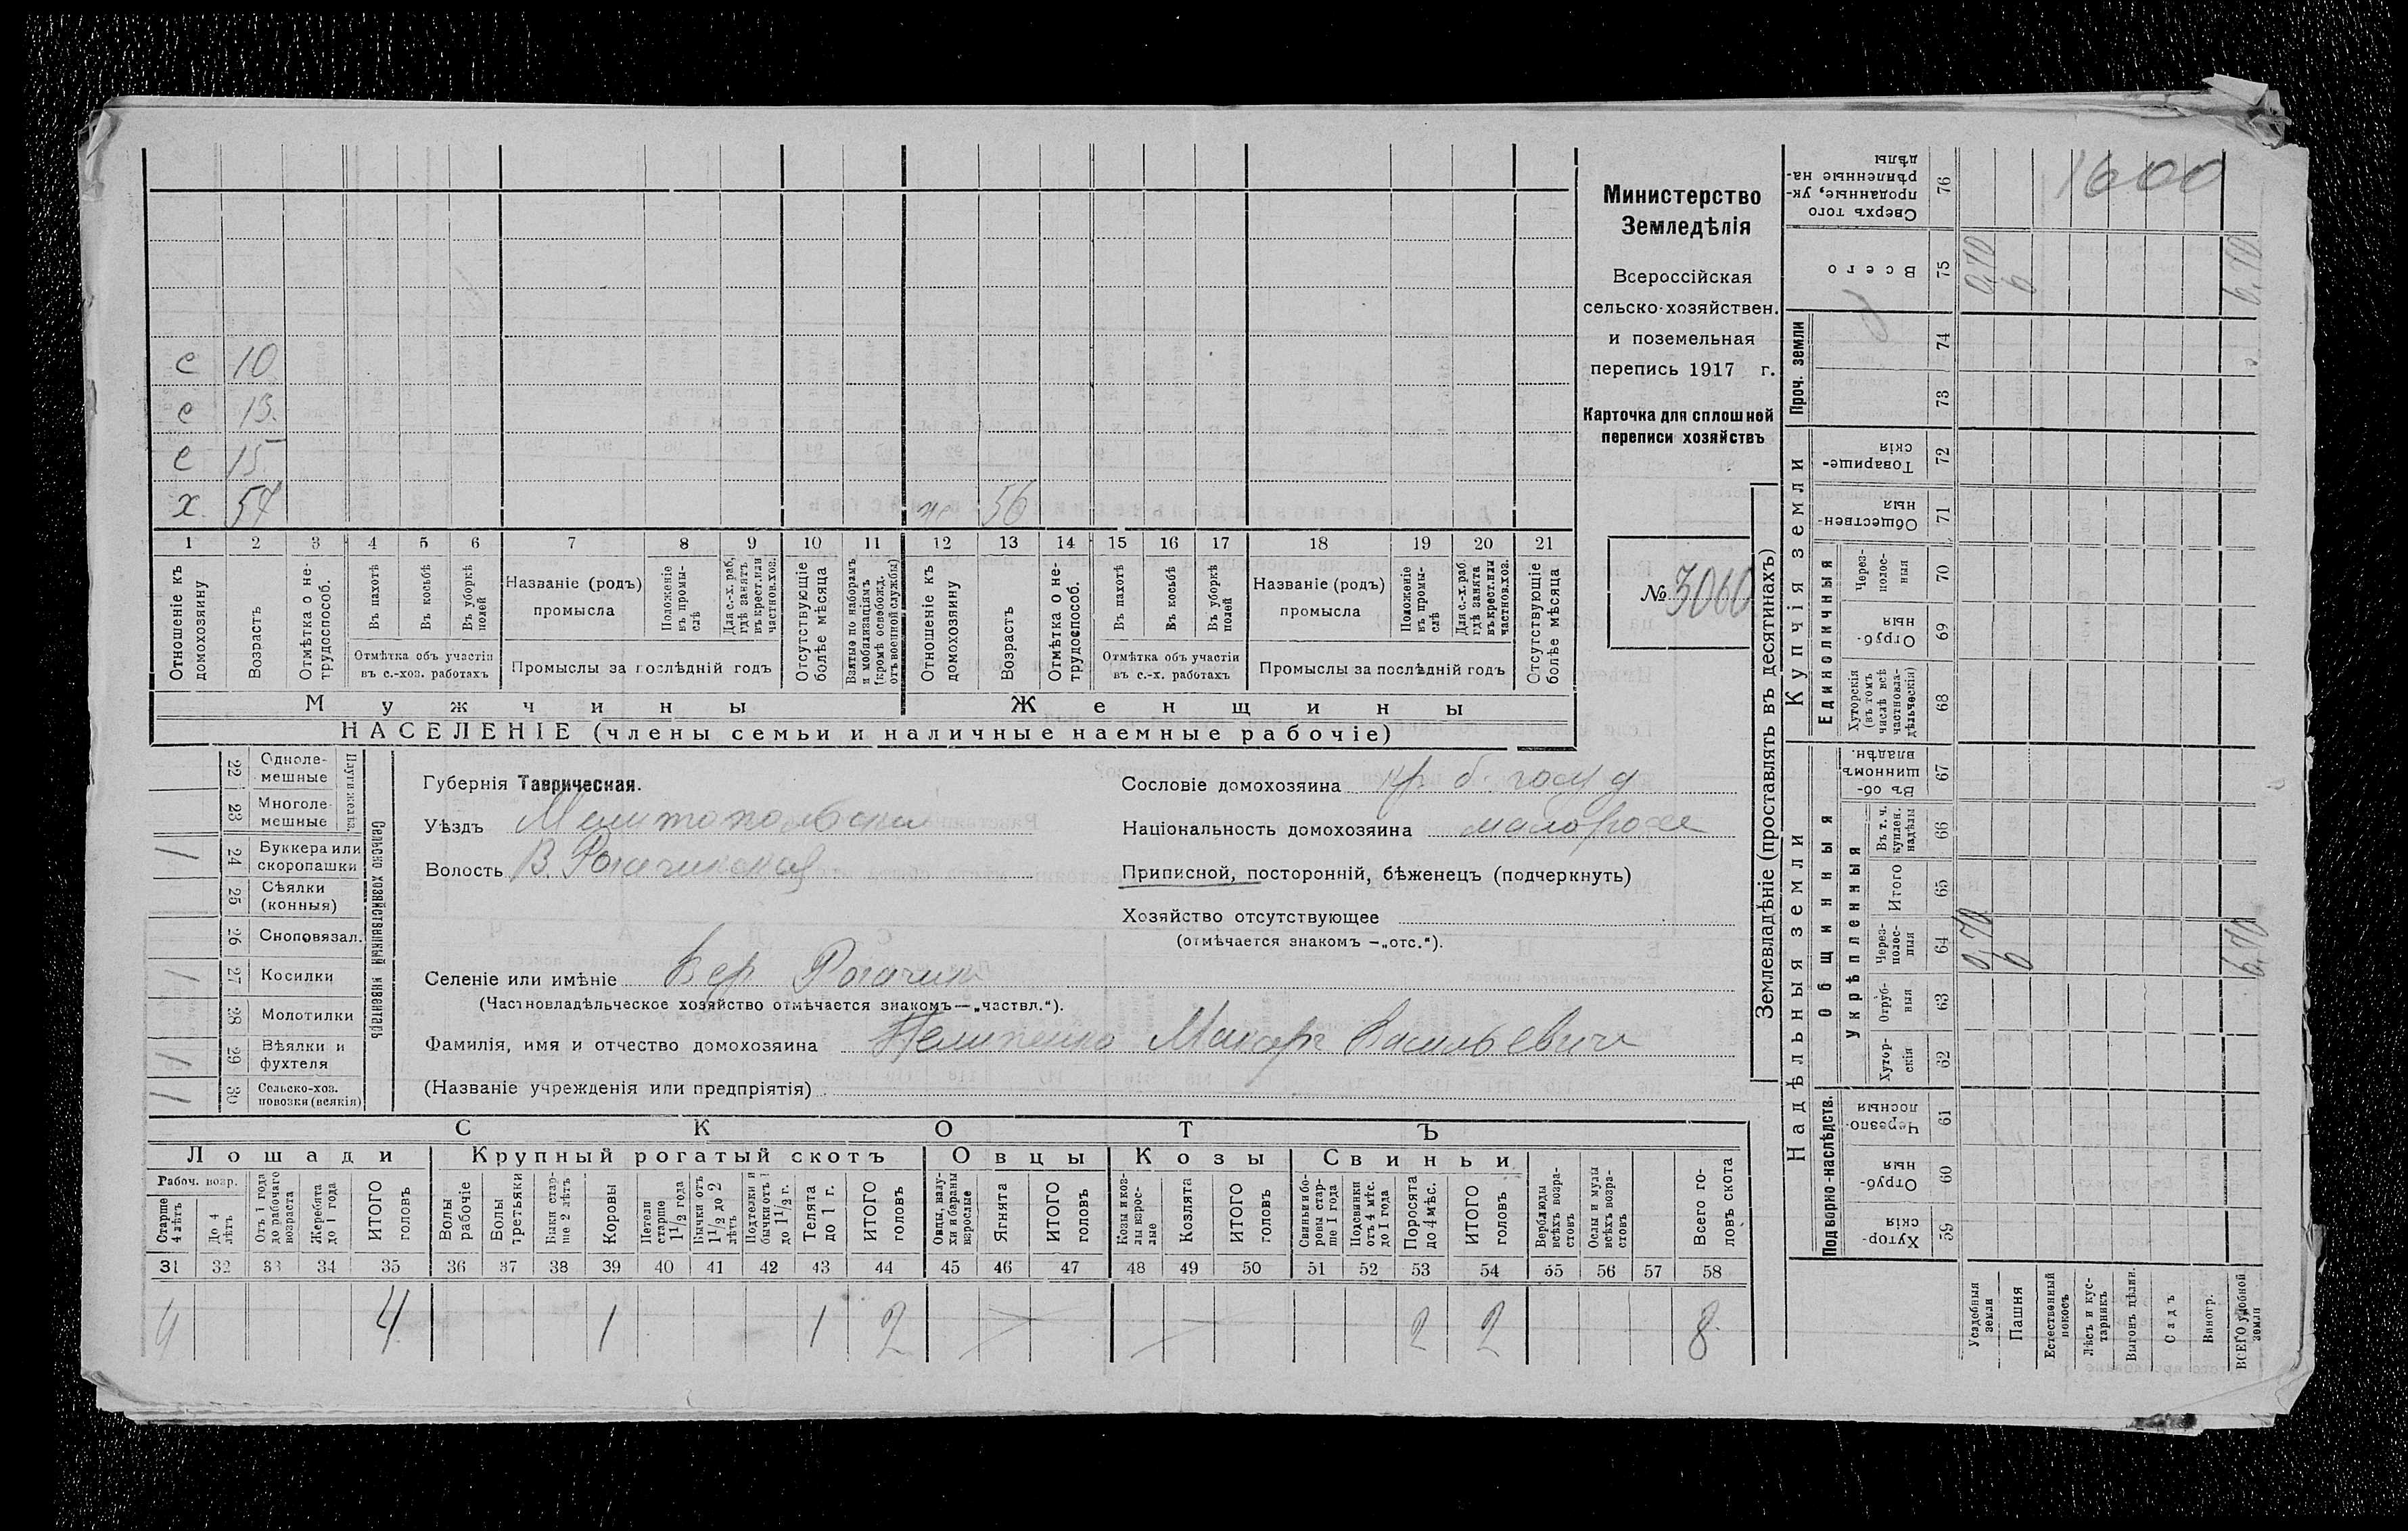 Министерство
Земледѣлія
Всероссійская
сельско-хозяйствен.
и поземельная
перепись 1917 г.
Карточка для сплошной
переписи хозяйствъ
№ 3060
е 10
е 13.
е 15.
х. 54 ж 56
1 2 3 4 5 6 7 8 9 10 11 12 13 14 15 16 17 18 19 20 21
Отношеніе къ домохозяину
Возрастъ
Отмѣтка о не-трудоспособ.
Въ пахотѣ
Въ косьбѣ
Въ уборкѣ полей
Отмѣтка объ участіи въ с.-хоз. работахъ
Названіе (родъ) промысла
Положеніе въ промы-слѣ
Для с.-х. раб. гдѣ занятъ въ крест. или частнов. хоз.
Промыслы за послѣдній годъ
Отсутствующіе болѣе мѣсяца
Взятые по наборамъ и мобилизаціямъ (кромѣ освобожд. отъ военной службы)
Отношеніе къ домохозяину
Возрастъ
Отмѣтка о не-трудоспособ.
Въ пахотѣ
Въ косьбѣ
Въ уборкѣ полей
Отмѣтка объ участіи въ с.-х. работахъ
Названіе (родъ) промысла
Положеніе въ промы-слѣ
Для с.-х. раб. гдѣ занята въ крест. или частнов. хоз.
Промыслы за послѣдній годъ
Отсутствующіе болѣе мѣсяца
Мужчины Женщины
НАСЕЛЕНІЕ (члены семьи и наличные наемные рабочіе)
Сельско хозяйственный инвентарь
Плуги желѣз.
22 Одноле-мешные
23 Многоле-мешные
24 Буккера или скоропашки 1
25 Сѣялки (конныя)
26 Сноповязал.
27 Косилки 1
28 Молотилки
29 Вѣялки и фухтеля 1
30 Сельско-хоз. повозки (всякія) 1
Губернія Таврическая.
Уѣздъ Мелитопольскій
Волость В. Рогачикская
Сословіе домохозяина кр. б. госуд
Національность домохозяина малоросс
Приписной, посторонній, бѣженецъ (подчеркнуть)
Хозяйство отсутствующее
(отмѣчается знакомъ —„отс.“).
Селеніе или имѣніе Вер Рогачик
(Частновладѣльческое хозяйство отмѣчается знакомъ—„частвл.“).
Фамилія, имя и отчество домохозяина Пелипенко Макаръ Васильевичъ
(Названіе учрежденія или предпріятія)
СКОТЪ
Лошади Крупный рогатый скотъ Овцы Козы Свиньи
Рабоч. возр.
Старше 4 лѣтъ
До 4 лѣтъ
Отъ 1 года до рабочаго возраста
Жеребята до 1 года
ИТОГО головъ
Волы рабочіе
Волы третьяки
Быки стар-ше 2 лѣтъ
Коровы
Нетели старше 1 1/2 года
Бычки отъ 1 1/2 до 2 лѣтъ
Подтелки и бычки отъ 1 до 1 1/2 г.
Телята до 1 г.
ИТОГО головъ
Овцы, валу-хи и бараны взрослые
Ягнята
ИТОГО головъ
Козы и коз-лы взрос-лые
Козлята
ИТОГО головъ
Свиньи и бо-ровы стар-ше 1 года
Подсвинки отъ 4 мѣс. до 1 года
Поросята до 4 мѣс.
ИТОГО головъ
Верблюды всѣхъ возра-стовъ
Ослы и мулы всѣхъ возра-стовъ
Всего го-ловъ скота
31 32 33 34 35 36 37 38 39 40 41 42 43 44 45 46 47 48 49 50 51 52 53 54 55 56 57 58
4 4 1 1 2 2 2 8
Землевладѣніе (проставлять въ десятинахъ)
Надѣльныя земли
Купчія земли
Проч. земли
Подворно-наслѣдств.
Общинныя
Укрѣпленныя
Единоличныя
Сверхъ того проданные, ук-рѣпленные на-дѣлы 76 1600
Всего 75 0,70 6 6,70
74
73
Товарище-скія 72
Обществен-ныя 71
Через-полос-ныя 70
Отруб-ныя 69
Хуторскія (въ томъ числѣ всѣ частновла-дѣльческія) 68
Въ об-щинномъ владѣн. 67
Въ т. ч. куплен. надѣлы 66
Итого 65
Через-полос-ныя 64 0,70 6 6,70
Отруб-ныя 63
Хутор-скія 62
Черезпо-лосныя 61
Отруб-ныя 60
Хутор-скія 59
Усадебныя земли
Пашня
Естественный покосъ
Лѣсъ и кус-тарникъ
Выгонъ цѣлин.
Садъ
Виногр.
ВСЕГО удобной земли